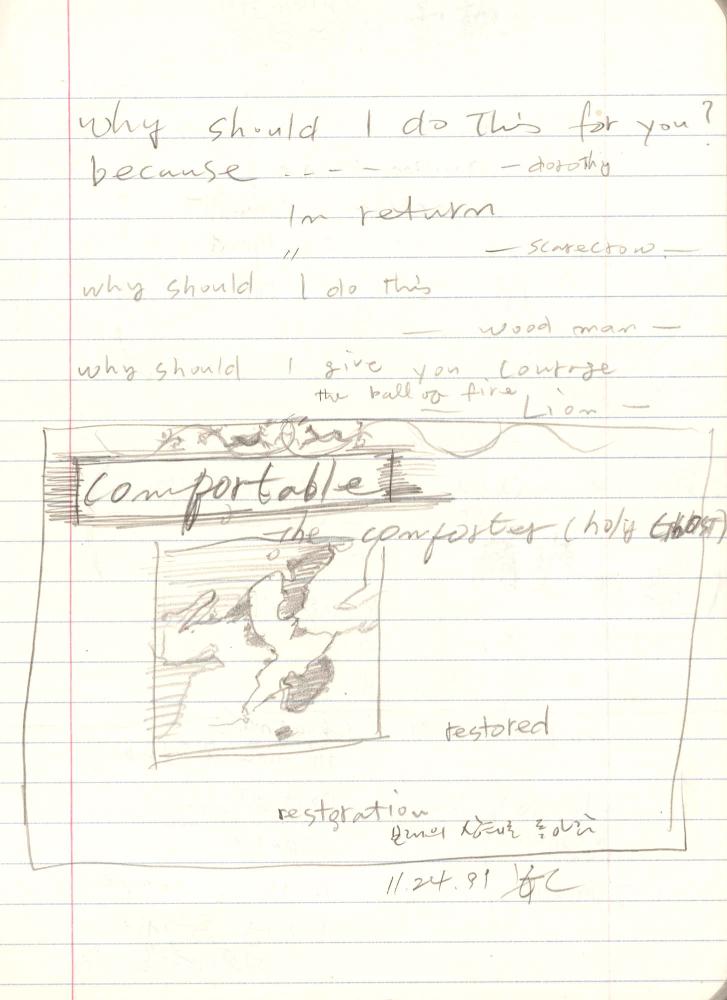 why should I do This for you?
because ..-- — dorothy
In return
〃 — scarecrow —
why should I do this
— wood man —
why should I give you courage
the ball of fire
— Lion —
comfortable
the comforter (holy GHOST)
restored
restoration
본래의 상태로 돌아감
11.24.91